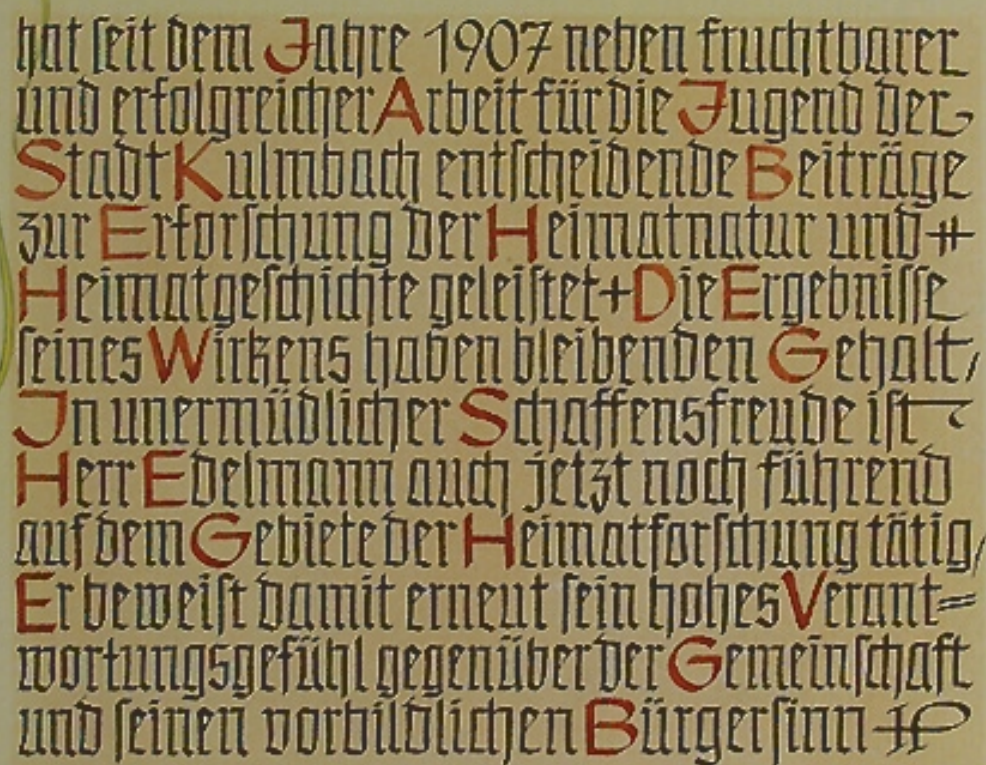 hat seit dem Jahre 1907 neben fruchtbarer
und erfolgreicher Arbeit für die Jugend der
Stadt Kulmbach entscheidende Beiträge
zur Erforschung der Heimatnatur und
Heimatgeschichte geleistet + Die Ergebnisse
seines Wirkens haben bleibenden Gehalt /
In unermüdlicher Schaffensfreude ist
Herr Edelmann auch jetzt noch führend
auf dem Gebiete der Heimatforschung tätig /
Er beweist damit erneut sein hohes Verant=
wortungsgefühl gegenüber der Gemeinschaft
und seinen vorbildlichen Bürgersinn